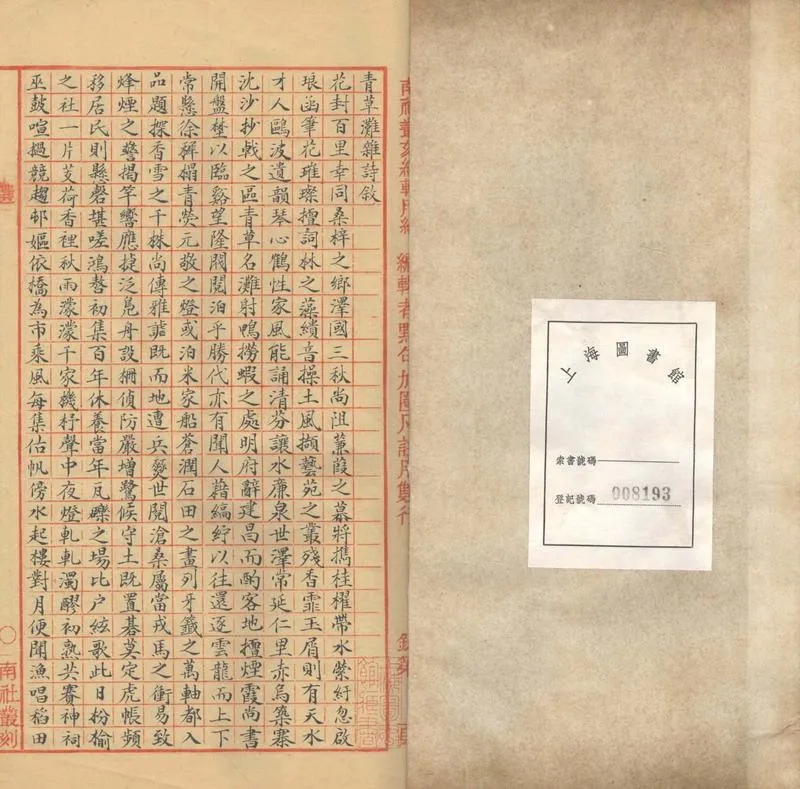 上海圖書館
索書號碼
登記號碼 008193
南社叢刻編輯用紙 編輯者點句加圈凡註用雙行
青草灘雜詩敘
花封百里幸同桑梓之鄉澤國三秋尚阻蒹葭之慕將攜桂櫂帶水縈紆忽啟
琅函筆花璀璨擅詞林之藻繢音操土風擷藝苑之叢殘香霏玉屑則有天水
才人鷗波遺韻琴心鶴性家風能誦清芬讓水廉泉世澤常延仁里赤烏築寨
沈沙抄戟之區青草名灘射鴨撈蝦之處明府辭建昌而酌客地擅煙霞尚書
開盤埜以臨谿望隆閥閱泊乎勝代亦有聞人藉縞紵以往還逐雲龍而上下
常懸徐穉榻青熒元敬之燈或泊米家船蒼潤石田之畫列牙籤之萬軸都入
品題探香雪之千株尚傳雅謔既而地遭兵燹世閱滄桑屬當戎馬之衝易致
烽煙之警揭竿響應捷泛鳧舟設柵偵防嚴增鷺候守土既置碁莫定虎帳頻
移居民則懸磬堪嗟鴻嗸初集百年休養當年瓦礫之場比户絃歌此日枌榆
之社一片芰荷香裡秋雨濛濛千家機杼聲中夜燈軋軋濁醪初熟共賽神祠
巫鼓喧撾競趨邨嫗依橋為市乘風每集估帆傍水起樓對月便聞漁唱稻田
選
南社叢刻